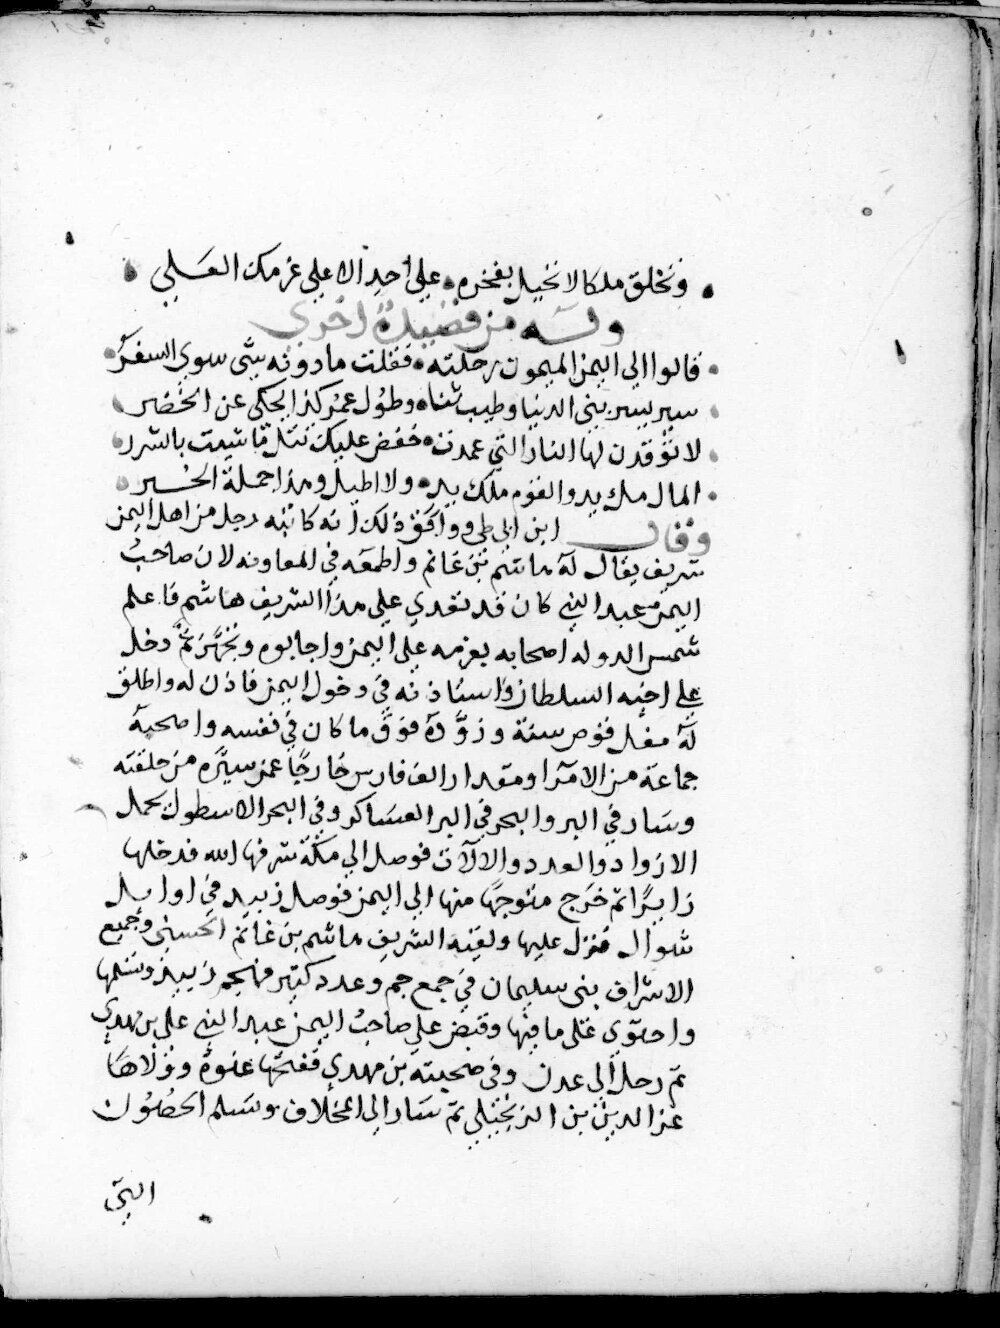 وتخلق ملكا لا تخيل بفخره • علي احد الا علي عزمك العلي
وله من قصيدة اخري
قالوا الي اليمن الميمون رحلته • فقلت ما دونه شي سوي السفر
سير يسير بني الدنيا وطيب ثناء • وطول عمر كذا يحكي عن الخضر
لا توقدن لها النار التي عمدت • خفض عليك تنل ما شيت بالشرر
المال ملك يد والقوم ملك يد • ولا اطيل وهذا جملة الخبر
وقال ابن ابي طي ووافق ذلك انه كاتبه رجل من اهل اليمن
شريف يقال له هاشم بن غانم واطمعه في المعاونه لان صاحب
اليمن عبد النبي كان قد تعدي علي هذا الشريف هاشم فاعلم
شمس الدوله اصحابه بعزمه علي اليمن واجابوه وتجهز ثم دخل
علي اخيه السلطان واستاذنه في دخول اليمن فاذن له واطلق
له مغل قوص سنة وزوده فوق ما كان في نفسه واصحبه
جماعة من الامرا ومقدار الف فارس خارجا عمن سيره من حلقته
وسار في البر والبحر في البر العساكر وفي البحر الاسطول يحمل
الازواد والعدد والالات فوصل الي مكة شرفها الله فدخلها
زايرا ثم خرج متوجها منها الي اليمن فوصل زبيد في اوايل
شوال فنزل عليها ولقيه الشريف هاشم بن غانم الحسني وجميع
الاشراف بني سليمان في جمع جم وعدد كثير فهجم زبيد وتسلمها
واحتوي علي ما فيها وقبض علي صاحب اليمن عبد النبي علي بن مهدي
ثم رحل الي عدن وفي صحبته بن مهدي ففتحها عنوة وولاها
عز الدين بن الزنجيلي ثم سار الي المخلاف وتسلم الحصون
التي